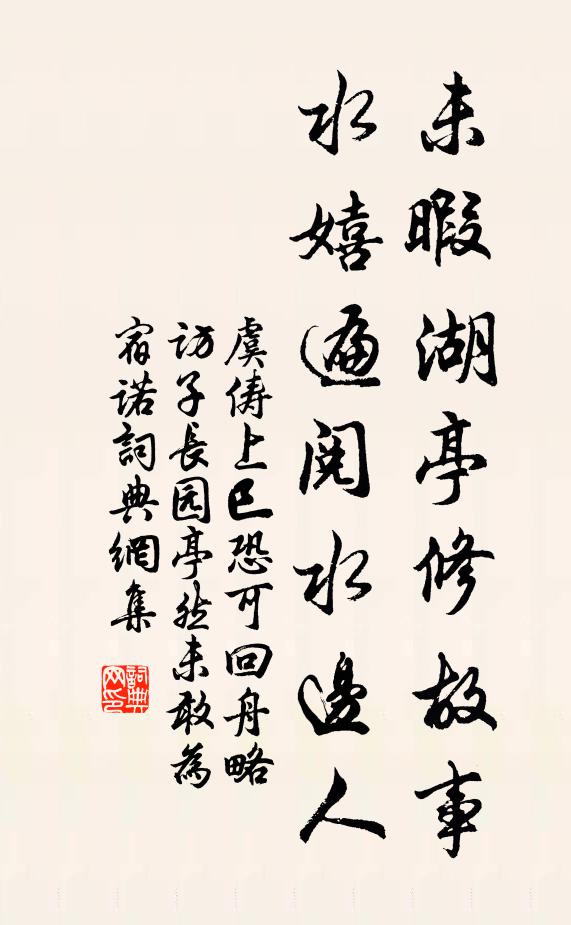 未暇湖亭修故事
水嬉遍阅水邊人
虞俦上巳恐可回舟略
访子長园亭然未敢為
宿诺詞典網集
詞典网印